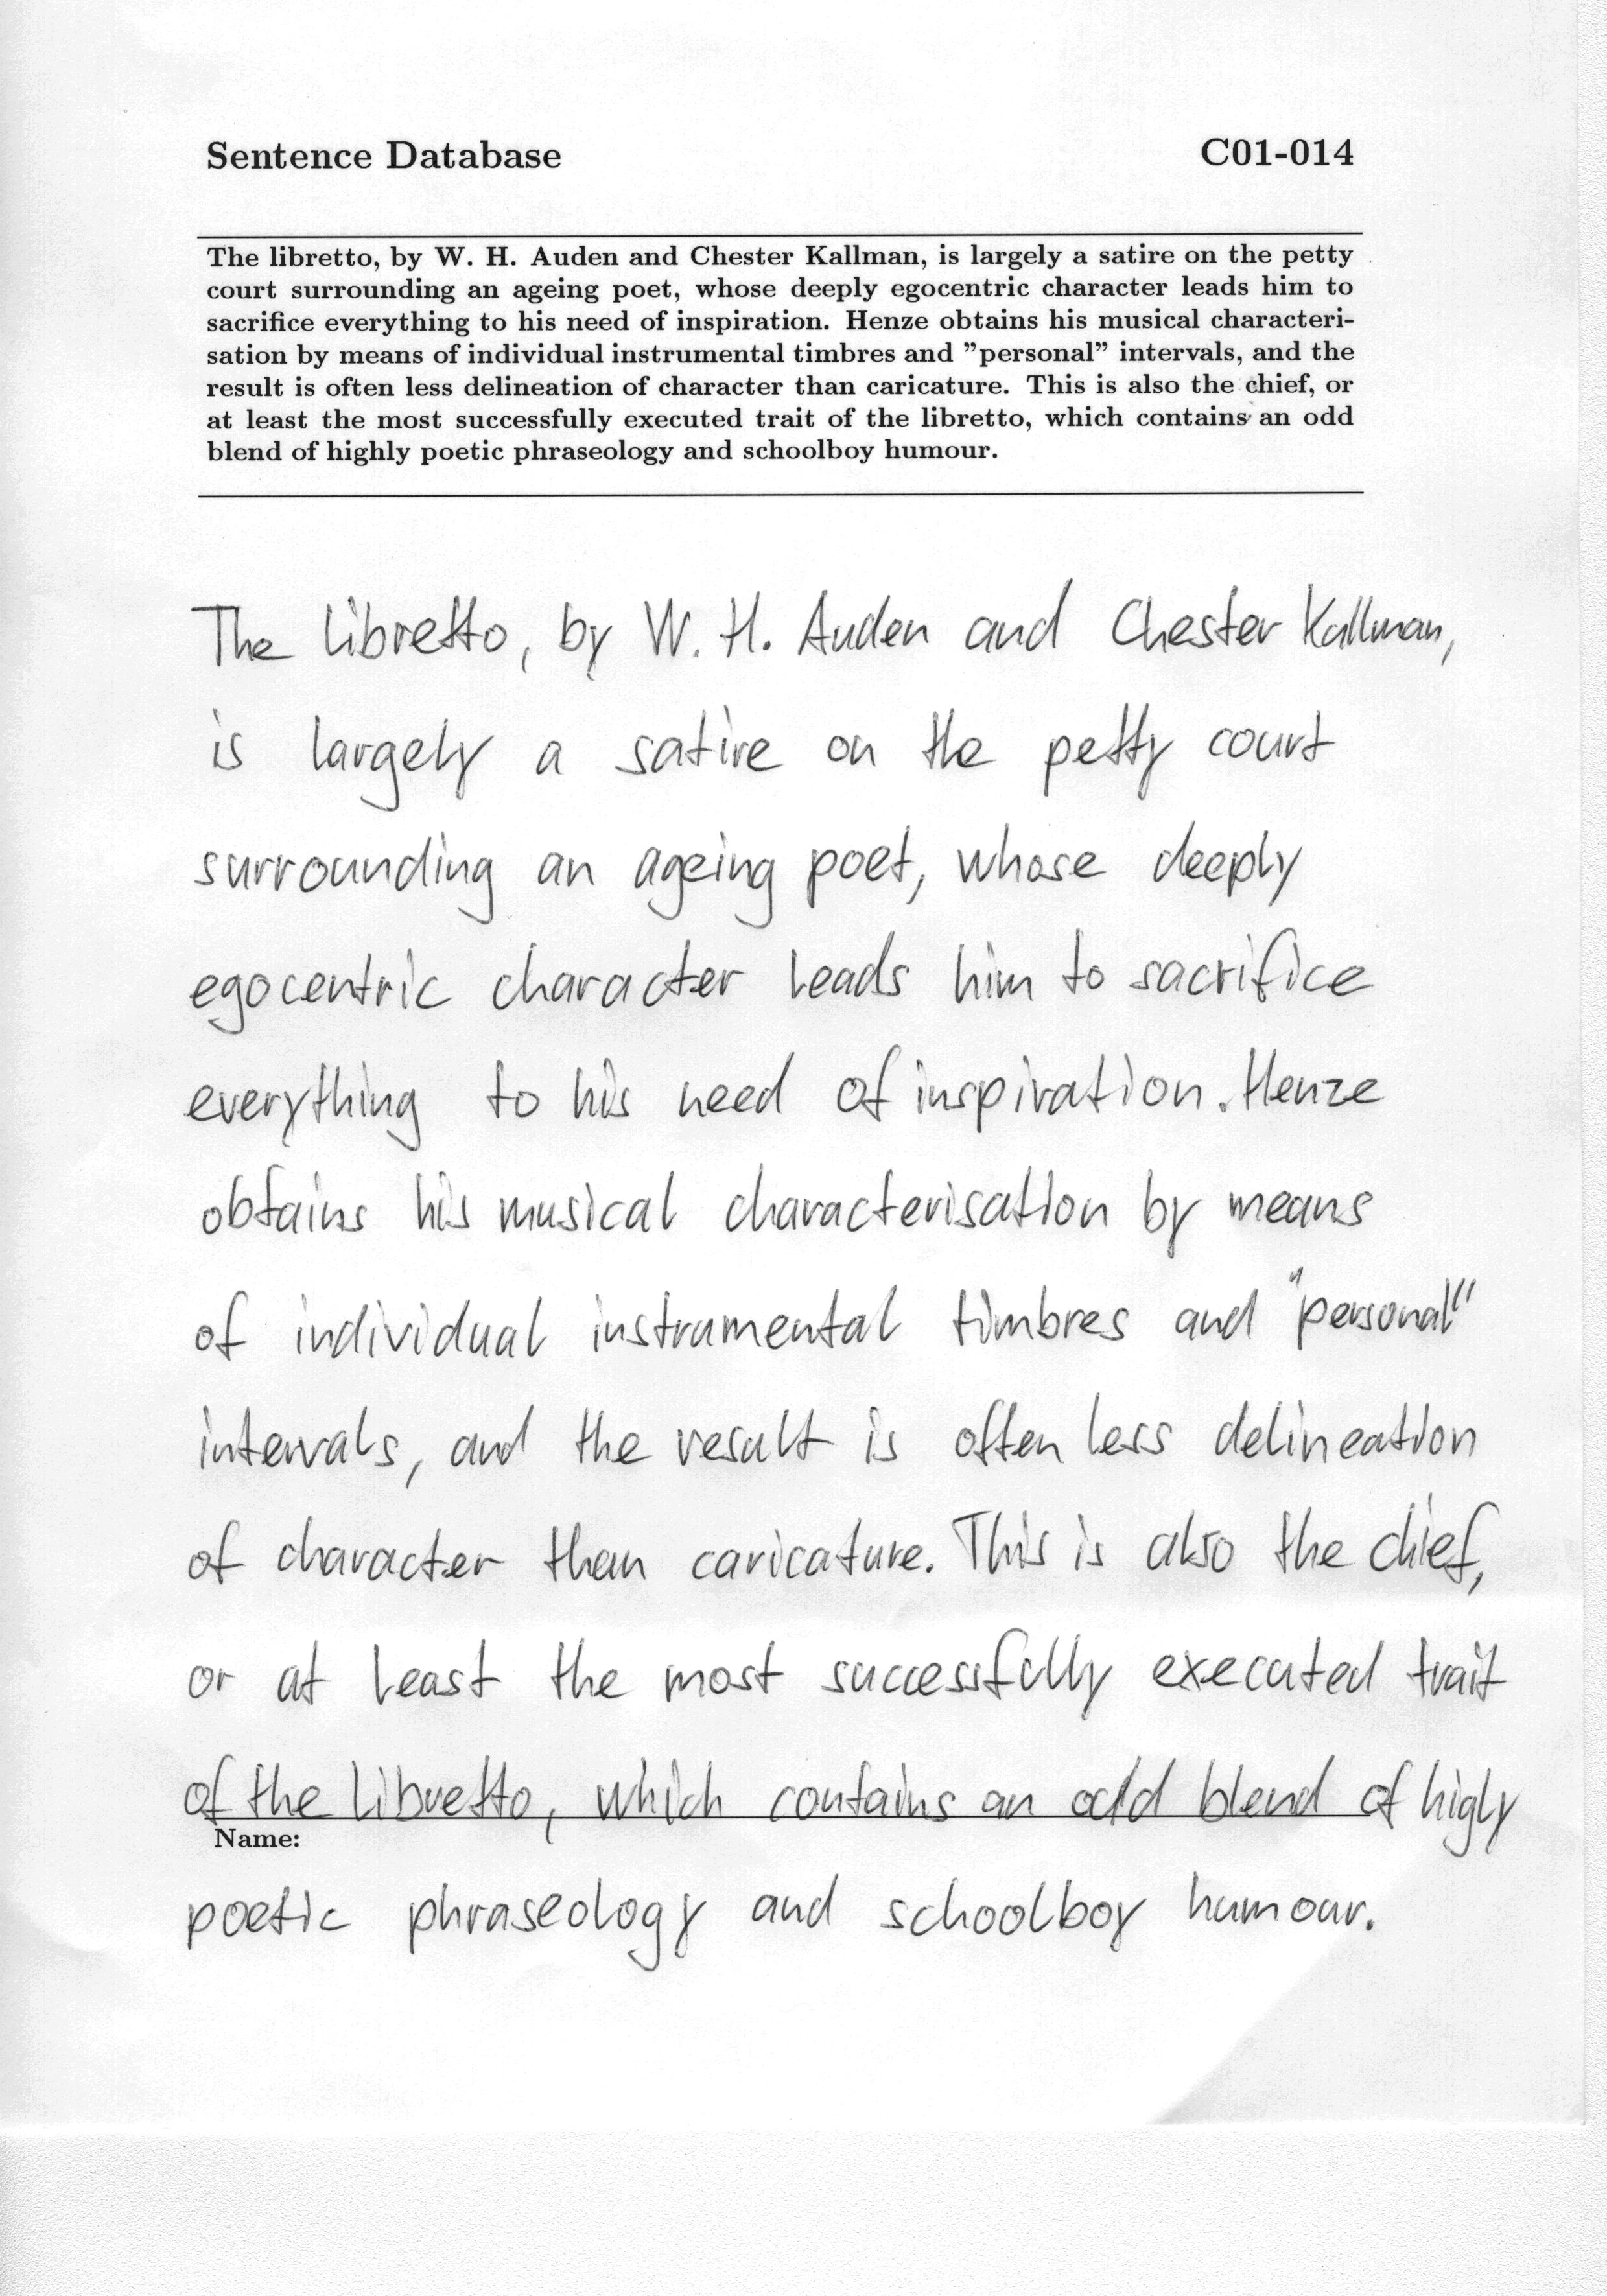 Sentence Database C01-014
The libretto, by W. H. Auden and Chester Kallman, is largely a satire on the petty
court surrounding an ageing poet, whose deeply egocentric character leads him to
sacrifice everything to his need of inspiration. Henze obtains his musical characteri-
sation by means of individual instrumental timbres and "personal" intervals, and the
result is often less delineation of character than caricature. This is also the chief, or
at least the most successfully executed trait of the libretto, which contains an odd
blend of highly poetic phraseology and schoolboy humour.
The libretto, by W. H. Auden and Chester Kallman,
is largely a satire on the petty court
surrounding an ageing poet, whose deeply
egocentric character leads him to sacrifice
everything to his need of inspiration. Henze
obtains his musical characterisation by means
of individual instrumental timbres and "personal"
intervals, and the result is often less delineation
of character than caricature. This is also the chief,
or at least the most successfully executed trait
of the libretto, which contains an odd blend of higly
Name:
poetic phraseology and schoolboy humour.